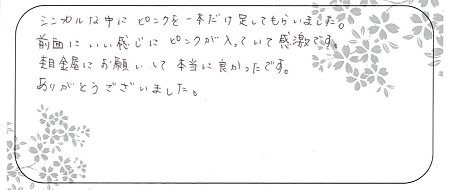 シンプルな中にピンクを一本だけ足してもらいました。
前面にいい感じにピンクが入っていて感激です。
超金屋にお願いして本当に良かったです。
ありがとうございました。